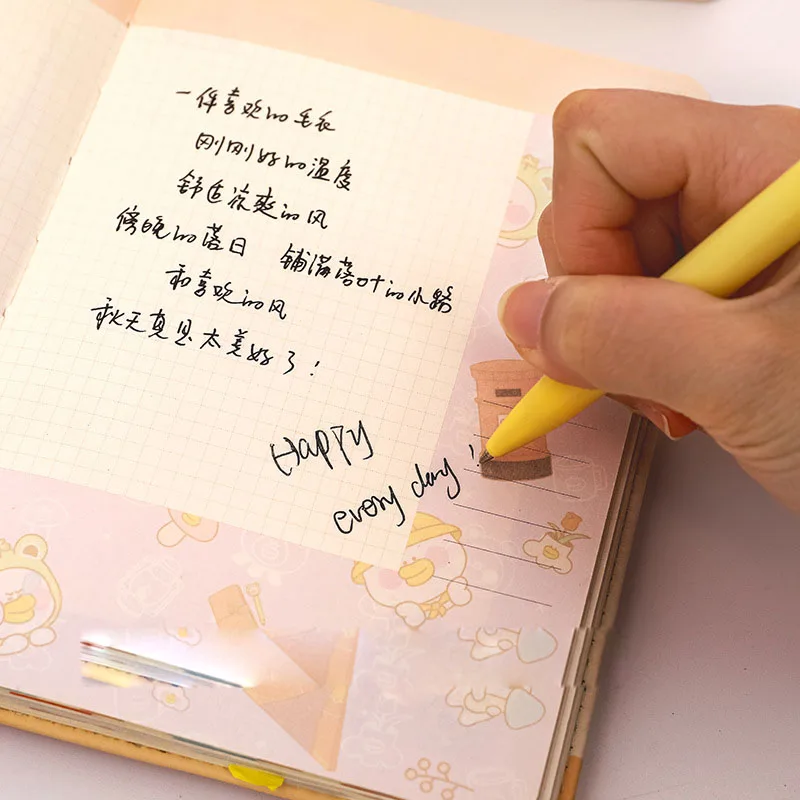 一件喜欢的毛衣
刚刚好的温度
舒适凉爽的风
傍晚的落日 铺满落叶的小路
和喜欢的风
秋天真是太美好了！
Happy
every day！